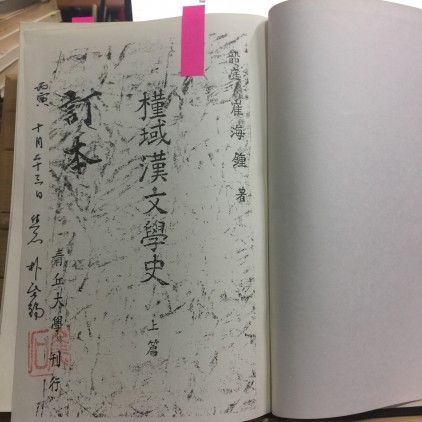 韶庭 崔海鍾 著
槿域漢文學史 上篇
訂本
青丘大學刊行
丙寅 十月二十三日 朴